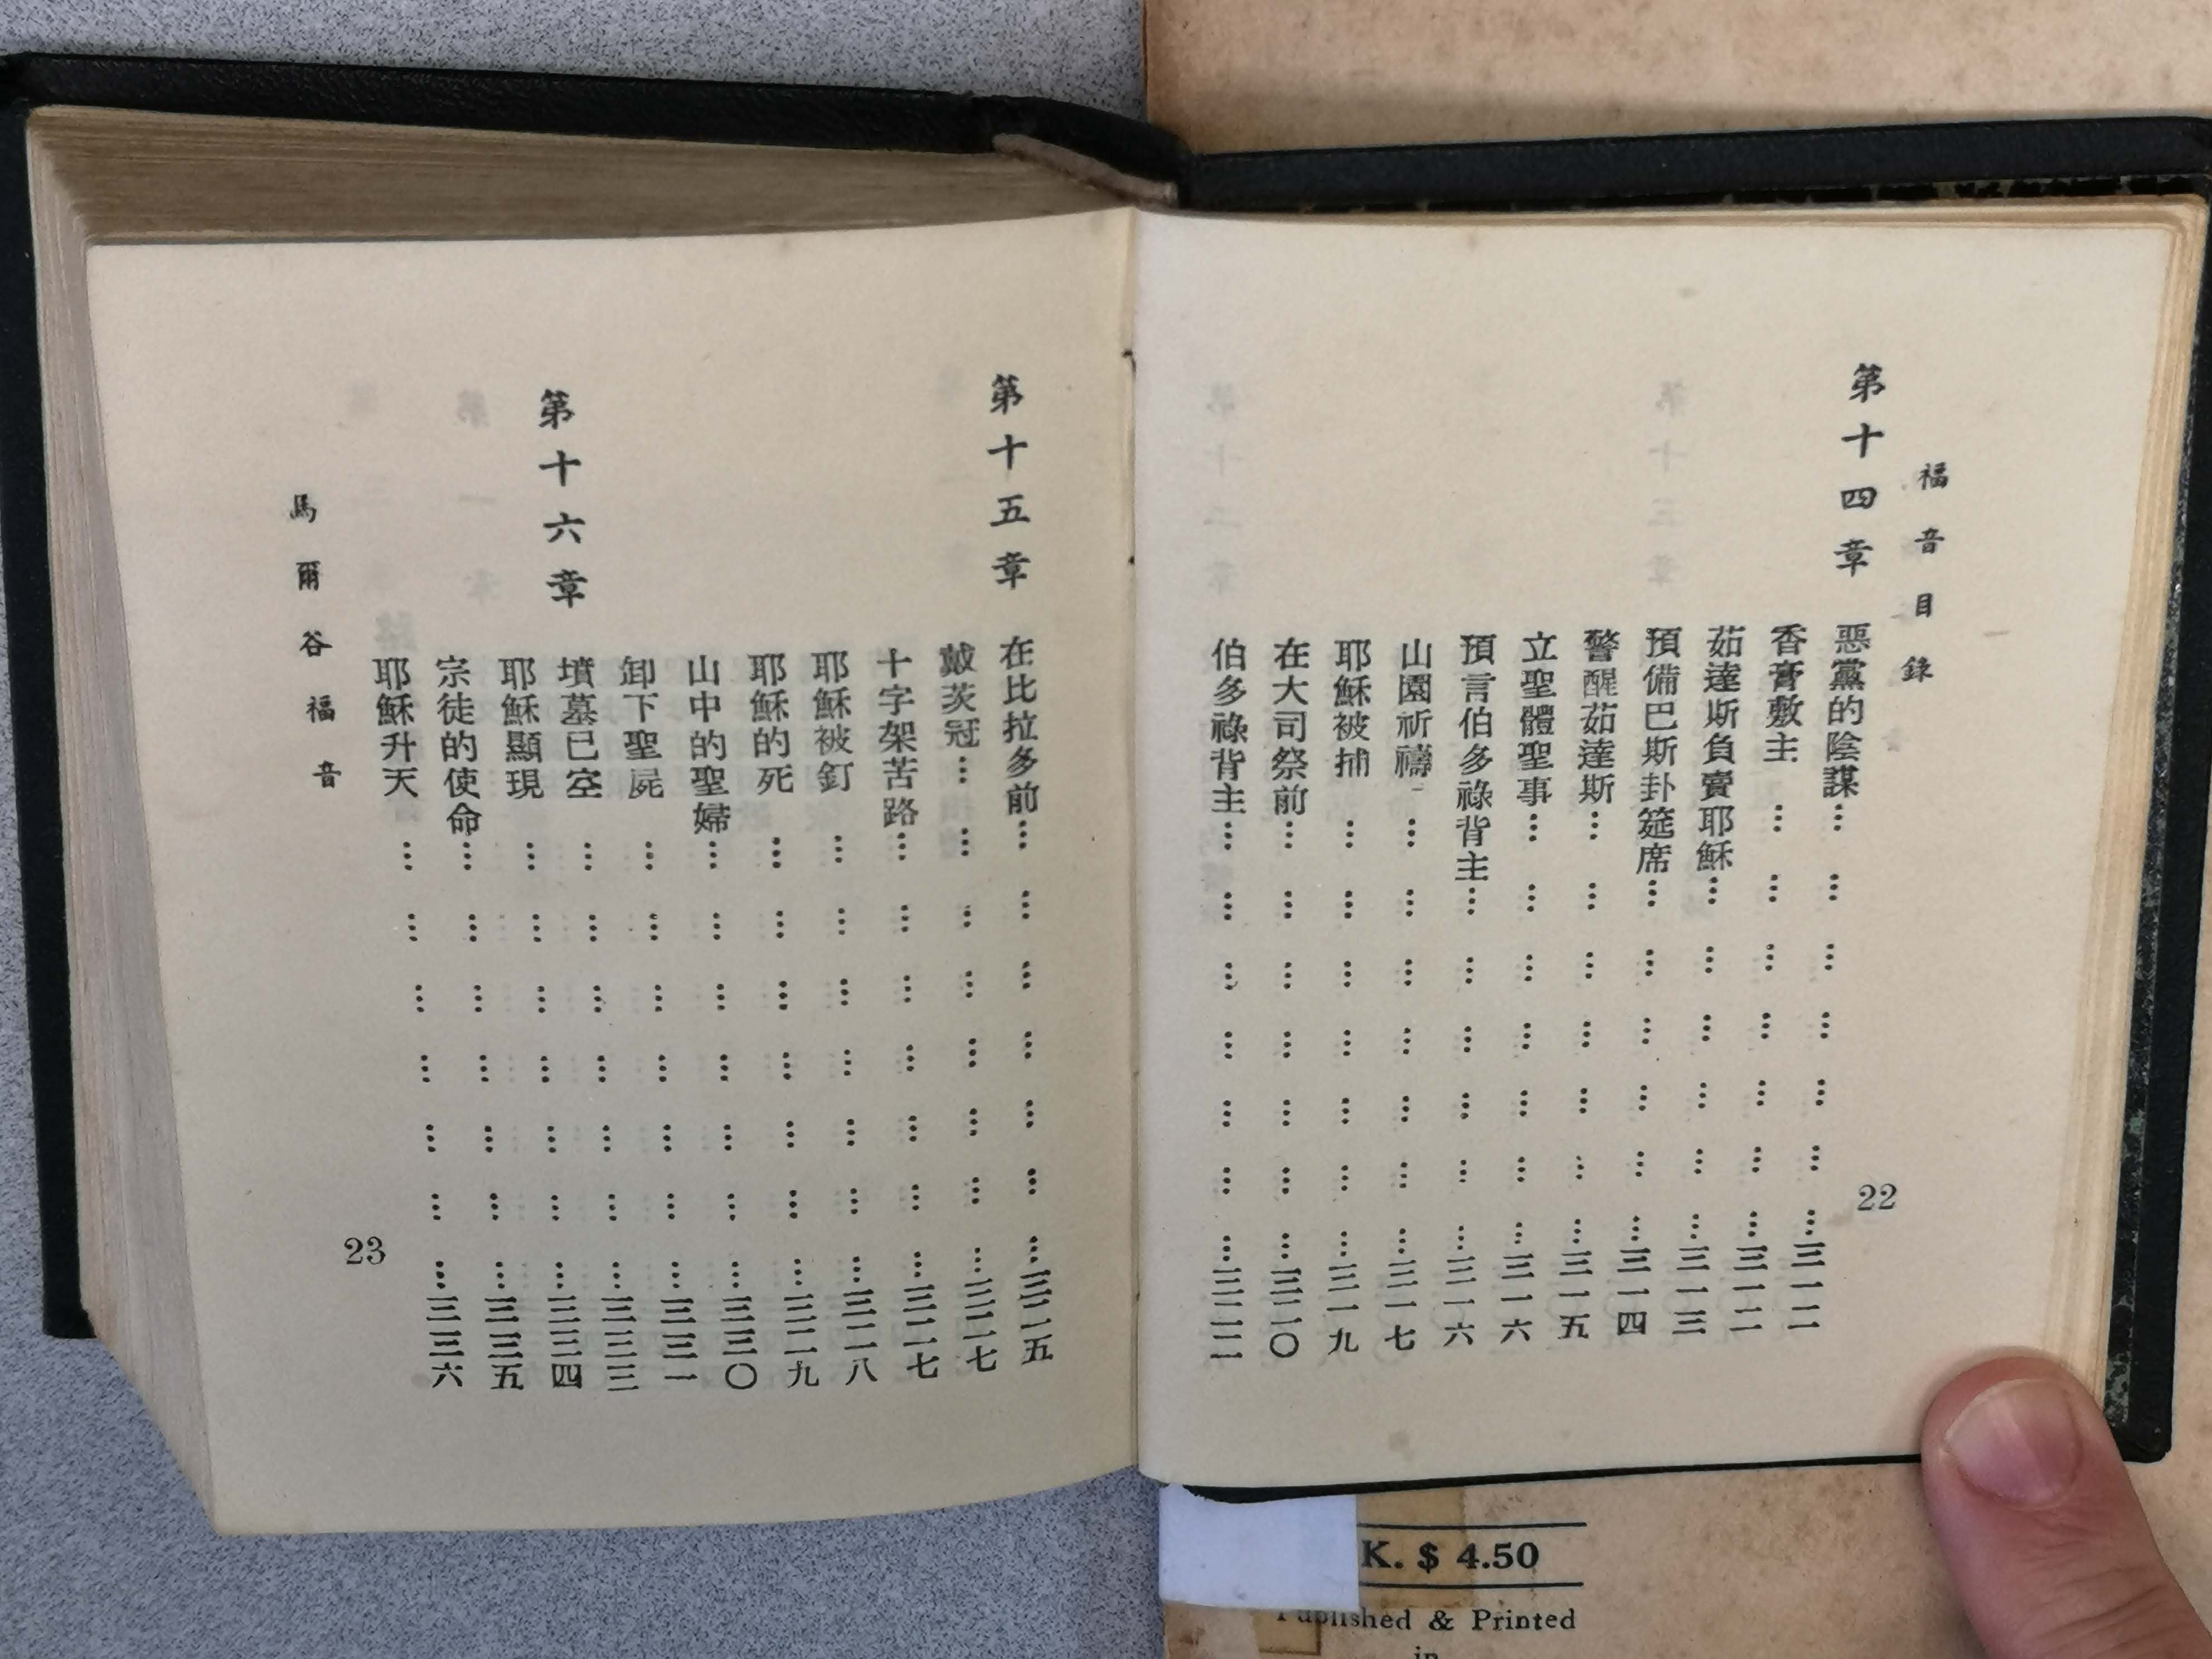 福音目錄
第十四章 惡黨的陰謀…………………三一二
香膏敷主…………………三一二
茹達斯負賣耶穌………………三一三
預備巴斯卦筵席………………三一四
警醒茹達斯…………………三一五
立聖體聖事…………………三一六
預言伯多祿背主………………三一六
山園祈禱…………………三一七
耶穌被捕…………………三一九
在大司祭前…………………三二〇
伯多祿背主…………………三二二
22
第十五章 在比拉多前…………………三二五
戴茨冠……………………三二七
十字架苦路…………………三二七
耶穌被釘…………………三二八
耶穌的死…………………三二九
山中的聖婦…………………三三〇
卸下聖屍…………………三三一
第十六章 墳墓已空…………………三三三
耶穌顯現…………………三三四
宗徒的使命…………………三三五
耶穌升天…………………三三六
馬爾谷福音
23
K. $ 4.50
Published & Printed
in